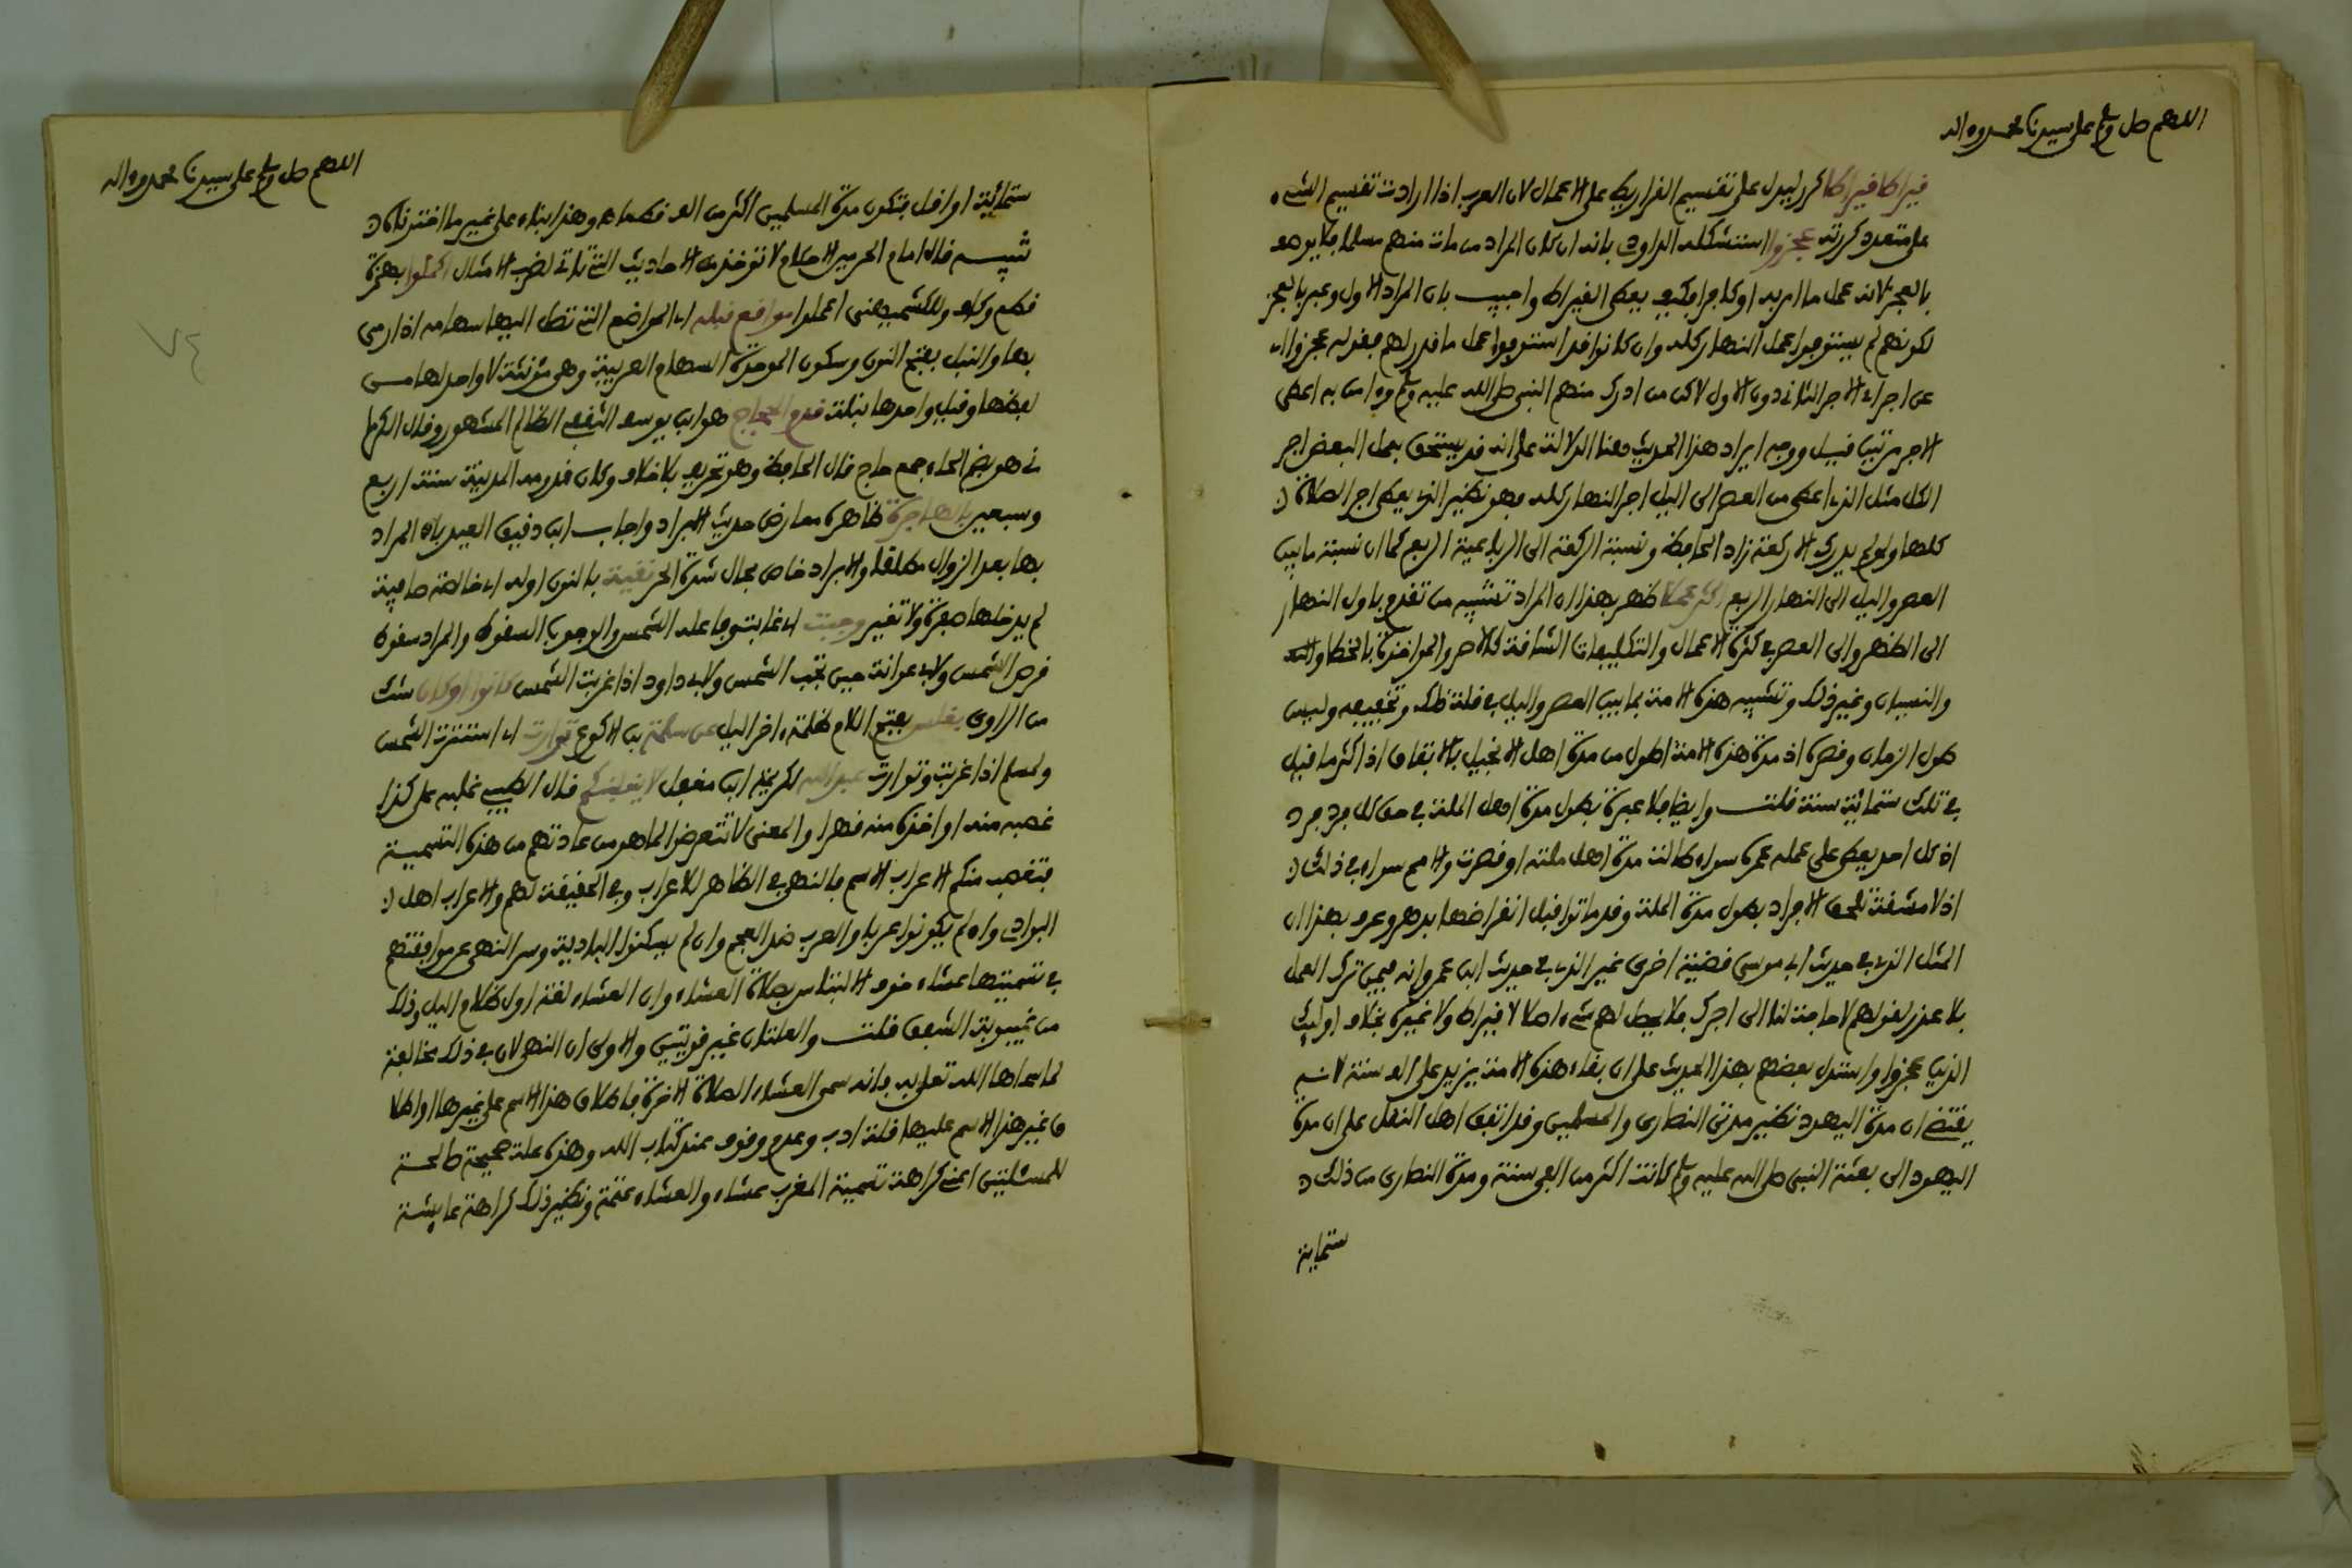 اللهم صل وسلم على سيدنا محمد وءاله
قيراطا قيراطا كرر ليدل على تقسيم القراريط على الاعمال لان العرب اذا ارادت تقسيم الشيء
على متعدد كررته عجزوا استشكله الداودي بانه ان كان المراد من مات منهم مسلما فلا يوصف
بالعجز لانه عمل ما امر به او كافرا فكيف يعطى القيراط واجيب بان المراد الاول وعبر بالعجز
لكونهم لم يستوفوا عمل النهار كله وان كانوا قد استوفوا عمل ما قدر لهم فقوله عجزوا اي
عن احراز الاجر الثاني دون الاول لاكن من ادرك منهم النبي صلى الله عليه وسلم وءامن به اعطي
الاجر مرتين قيل ووجه ايراد هذا الحديث هنا الدلالة على انه قد يستحق بعمل البعض اجر
الكل مثل الذي اعطي من العصر الى اليل اجر النهار كله فهو نظير الذي يعطى اجر الصلاة
كلها ولو لم يدرك الا ركعة زاد الحافظ ونسبة الركعة الى الرباعية الربع كما ان نسبة ما بين
العصر واليل الى النهار الربع اكثر عملا ظهر بهذا ان المراد تشبيه من تقدم باول النهار
الى الظهر والى العصر في كثرة الاعمال والتكليفات الشاقة كالاصر والمواخذة بالخطا
والنسيان وغير ذلك وتشبيه هذه الامة بما بين العصر واليل في قلة ذلك وتخفيفه وليس
طول الزمان وقصره اذ مدة هذه الامة اطول من مدة اهل الانجيل بالاتفاق اذ اكثر ما قيل
في تلك ستمائة سنة قلت وايضا فلا عبرة بطول مدة اهل الملة في حق كل فرد فرد
اذ كل احد يعطى على عمله عمره سواء طالت مدة اهل ملته او قصرت والامم سواء في ذلك
اذ لا مشقة تلحق الافراد بطول مدة الملة وقد ماتوا قبل انقراضها بدهر وعرف بهذا ان
المثل الذي في حديث ابي موسى قضية اخرى غير الذي في حديث ابن عمر وانه فيمن ترك العمل
بلا عذر لقولهم لا حاجة لنا الى اجرك فلا يحصل لهم شيء اصلا لا قيراط ولا غيره بخلاف اوليك
الذين عجزوا واستدل بعضهم بهذا الحديث على ان بقاء هذه الامة يزيد على الف سنة لانه
يقتضي ان مدة اليهود نظير مدتي النصارى والمسلمين وقد اتفق اهل النقل على ان مدة
اليهود الى بعثة النبي صلى الله عليه وسلم كانت اكثر من الفي سنة ومدة النصارى من ذلك
ستماية
اللهم صل وسلم على سيدنا محمد وءاله
ستمائة او اقل فتكون مدة المسلمين اكثر من الف قطعا وهذا بناء على غير ما اخترناه
تنبيه قال امام الحرمين الاحكام لا توخذ من الاحاديث التي تاتي لضرب الامثال اكملوا بهمزة
قطع وكاف وللكشميهني اعملوا مواقع نبله اي المواضع التي تصل اليها سهامه اذا رمى
بها والنبل بفتح النون وسكون الموحدة السهام العربية وهي مؤنثة لا واحد لها من
لفظها وقيل واحدها نبلة قدم الحجاج هو ابن يوسف الثقفي الظالم المشهور وقال الكرما
ني هو بضم الحاء جمع حاج قال الحافظ وهو تحريف بلا خلاف وكان قدومه المدينة سنة اربع
وسبعين بالهاجرة ظاهره معارض حديث الابراد واجاب ابن دقيق العيد بان المراد
بها بعد الزوال مطلقا والابراد خاص بحال شدة الحر نقية بالنون اوله اي خالصة صافية
لم يدخلها صفرة ولا تغير وجبت اي غابت وفاعله الشمس والوجوب السقوط والمراد سقوط
قرص الشمس ولابي عوانة حين تجب الشمس ولابي داود اذا غربت الشمس كانوا او كان شك
من الراوي بغلس بفتح اللام ظلمة ءاخر اليل عن سلمة بن الاكوع توارت اي استترت الشمس
ولمسلم اذا غربت وتوارت عبد الله لكريمة ابن مغفل لا يغلبنكم قال الطيبي غلبه على كذا
غصبه منه او اخذه منه قهرا والمعنى لا تتعرضوا لما هو من عادتهم من هذه التسمية
فتغصب منكم الاعراب الاسم فالنهي في الظاهر للاعراب وفي الحقيقة لهم والاعراب اهل
البوادي وان لم يكونوا عربا والعرب ضد العجم وان لم يسكنوا البادية وسر النهي عن موافقتهم
في تسميتها عشاء خوف الالتباس بصلاة العشاء وان العشاء لغة اول ظلام اليل وذلك
من غيبوبة الشفق قلت والعلتان غير قويتين والاولى ان النهي لان في ذلك مخالفة
لما سماها الله تعالى به فانه سمى العشاء الصلاة الاخرة فاطلاق هذا الاسم على غيرها او اطلا
ق غير هذا الاسم عليها قلة ادب وعدم وقوف عند كتاب الله وهذه علة صحيحة صالحة
للمسئلتين اعني كراهة تسمية المغرب عشاء والعشاء عتمة ونظير ذلك كراهة عايشة